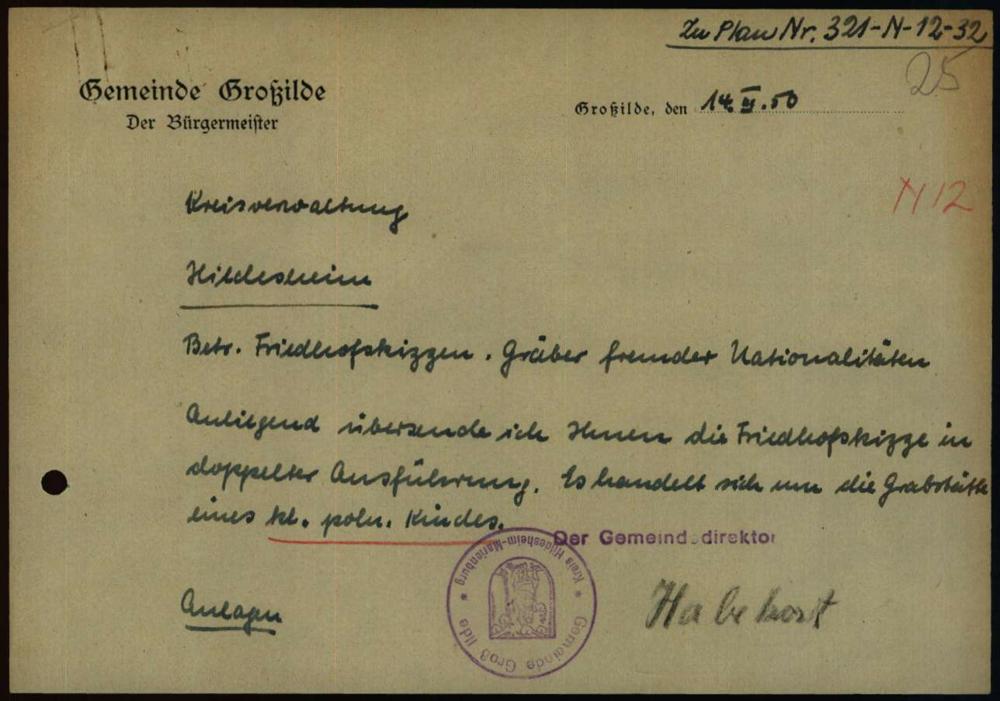 Zu Plan Nr. 321-N-12-32
25
Gemeinde Großilde
Der Bürgermeister
Großilde, den 14. II. 50
N 12
Kreisverwaltung
Hildesheim
Betr. Friedhofskizzen. Gräber fremder Nationalitäten
Anliegend übersende ich Ihnen die Friedhofskizze in
doppelter Ausführung. Es handelt sich um die Grabstätte
eines kl. poln. Kindes.
Der Gemeindedirektor
Kreis Hildesheim-Marienburg
Gemeinde Groß Ilde
Anlagen